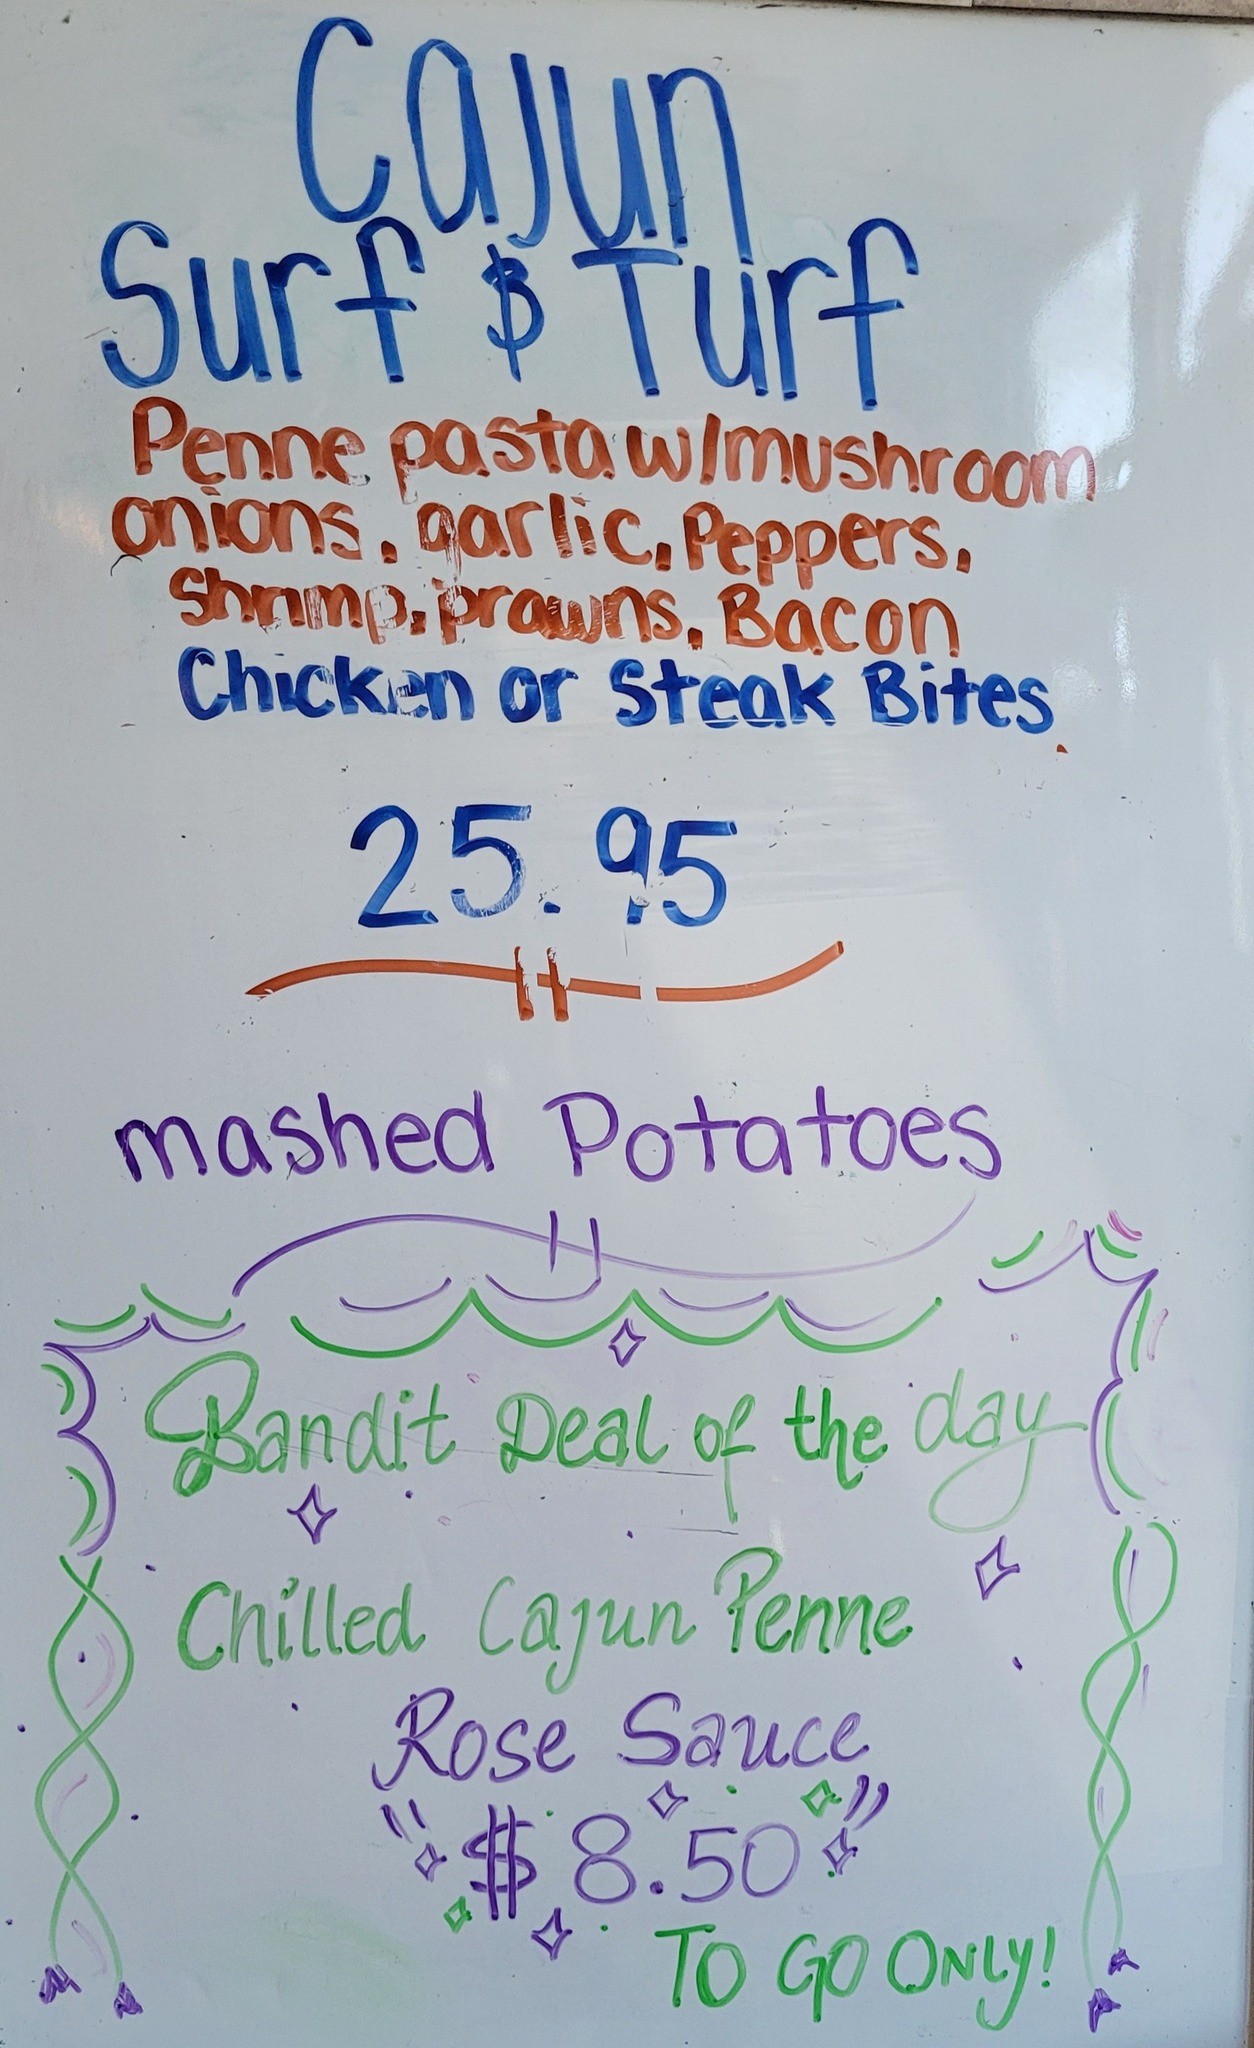 Cajun
Surf & Turf
Penne pasta w/mushroom
onions, garlic, Peppers,
Shrimp, prawns, Bacon
Chicken or Steak Bites
25.95
mashed Potatoes
Bandit Deal of the day
Chilled Cajun Penne
Rose Sauce
"$8.50"
TO GO ONLY!